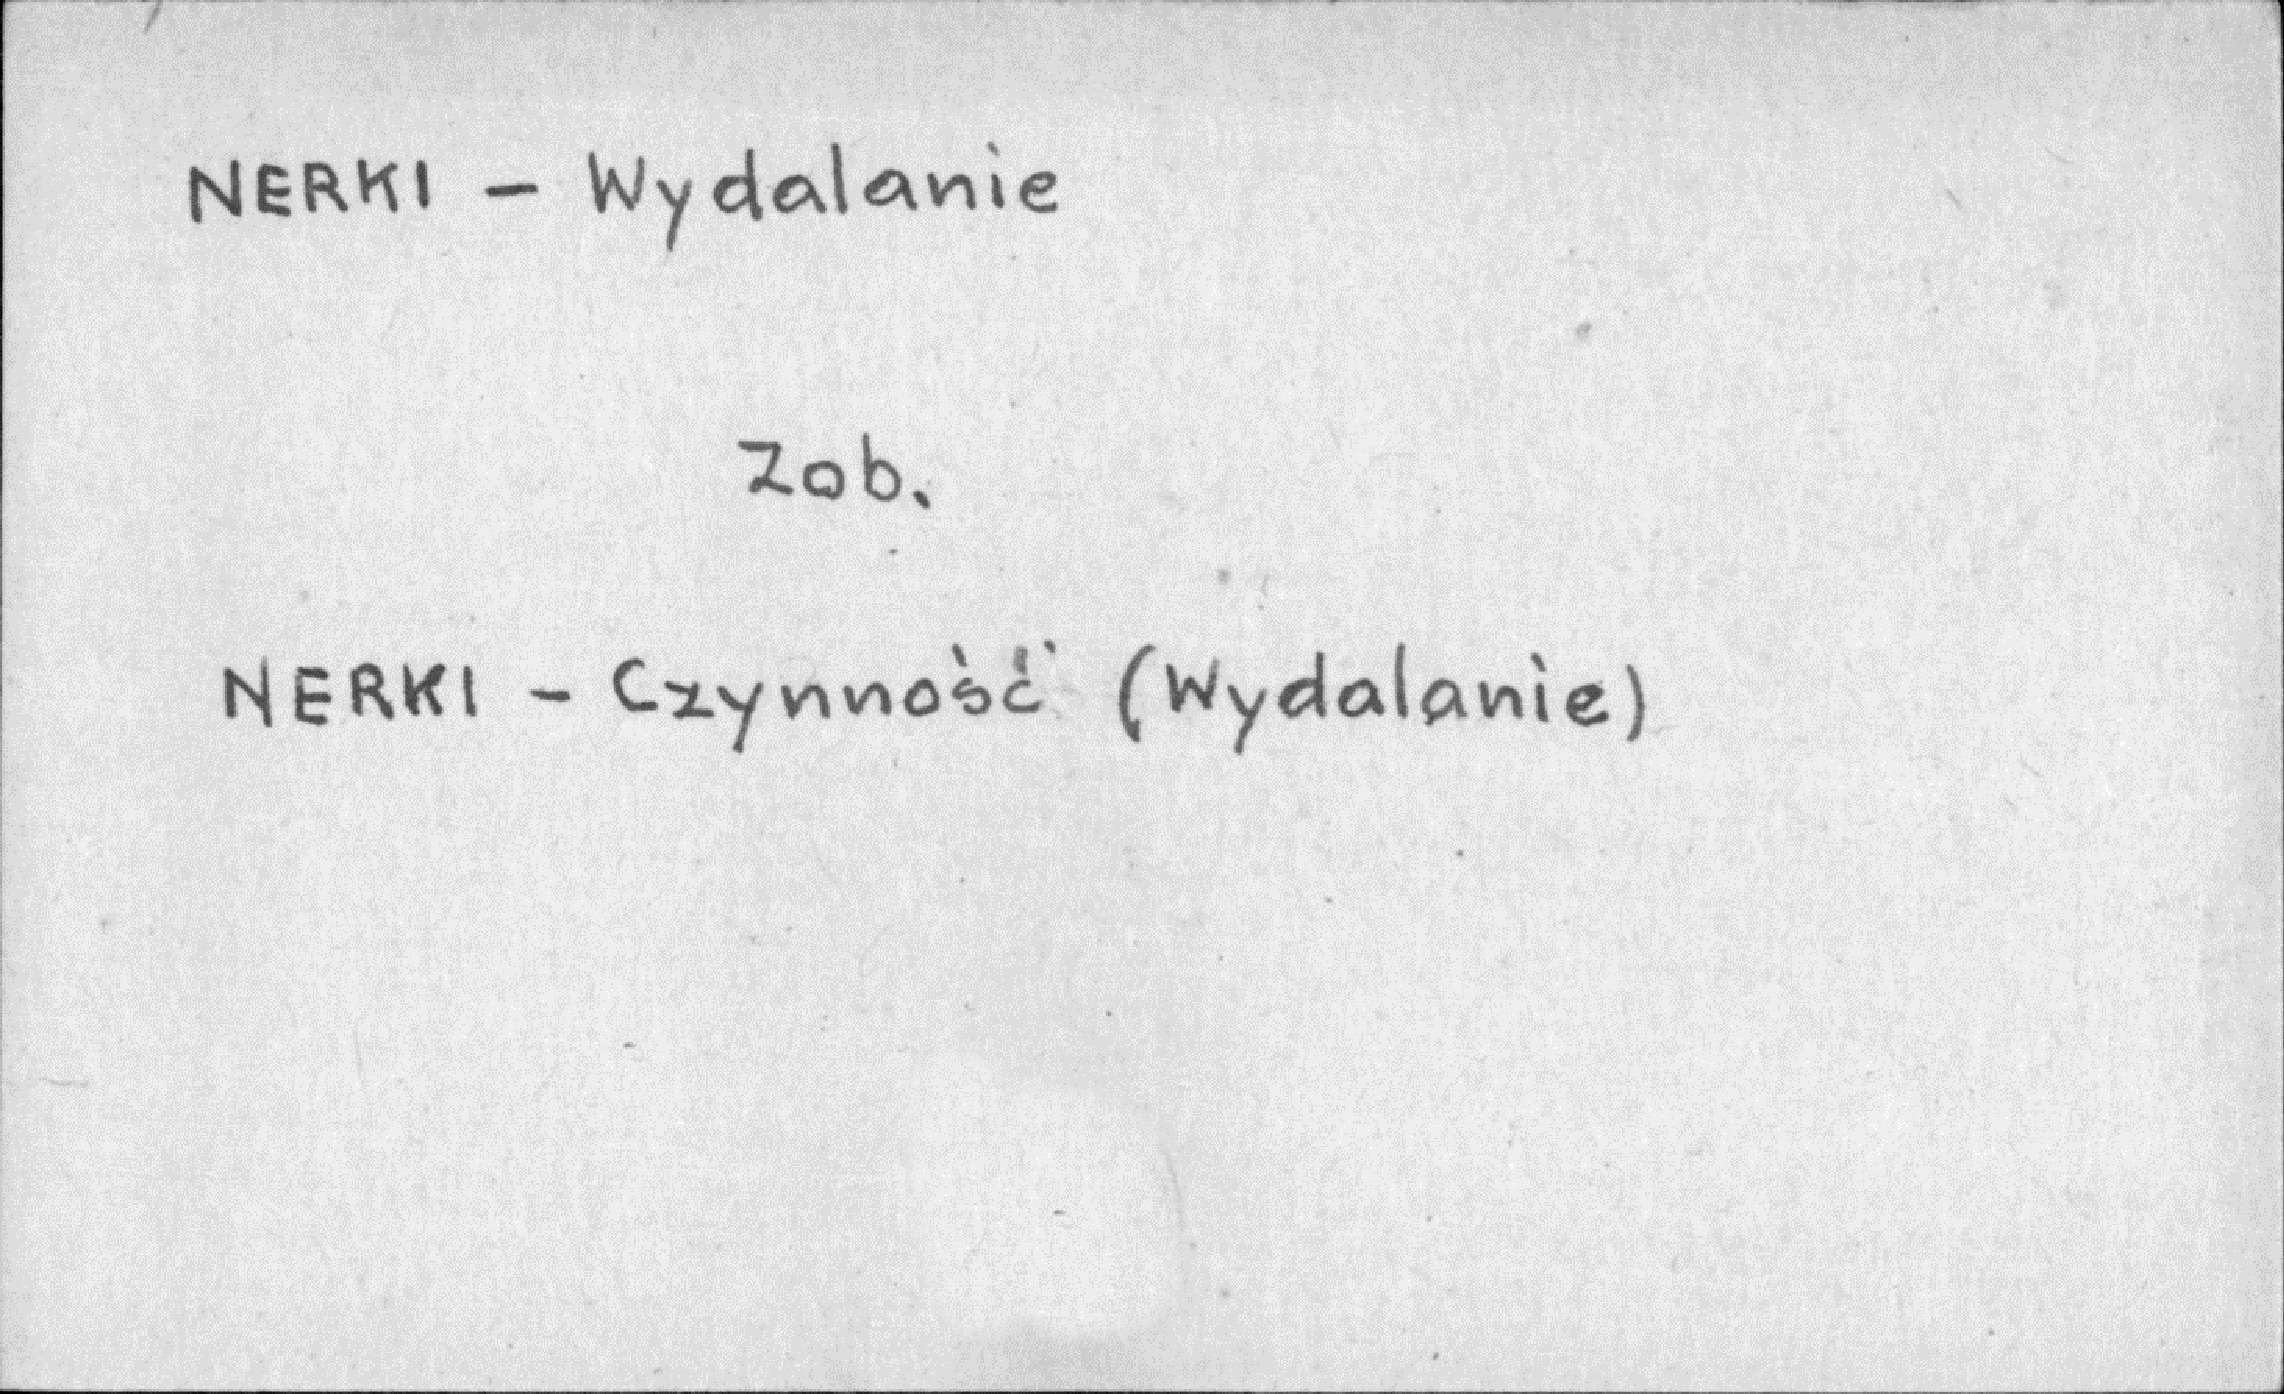 NERKI – Wydalanie
Zob.
NERKI – Czynność (Wydalanie)